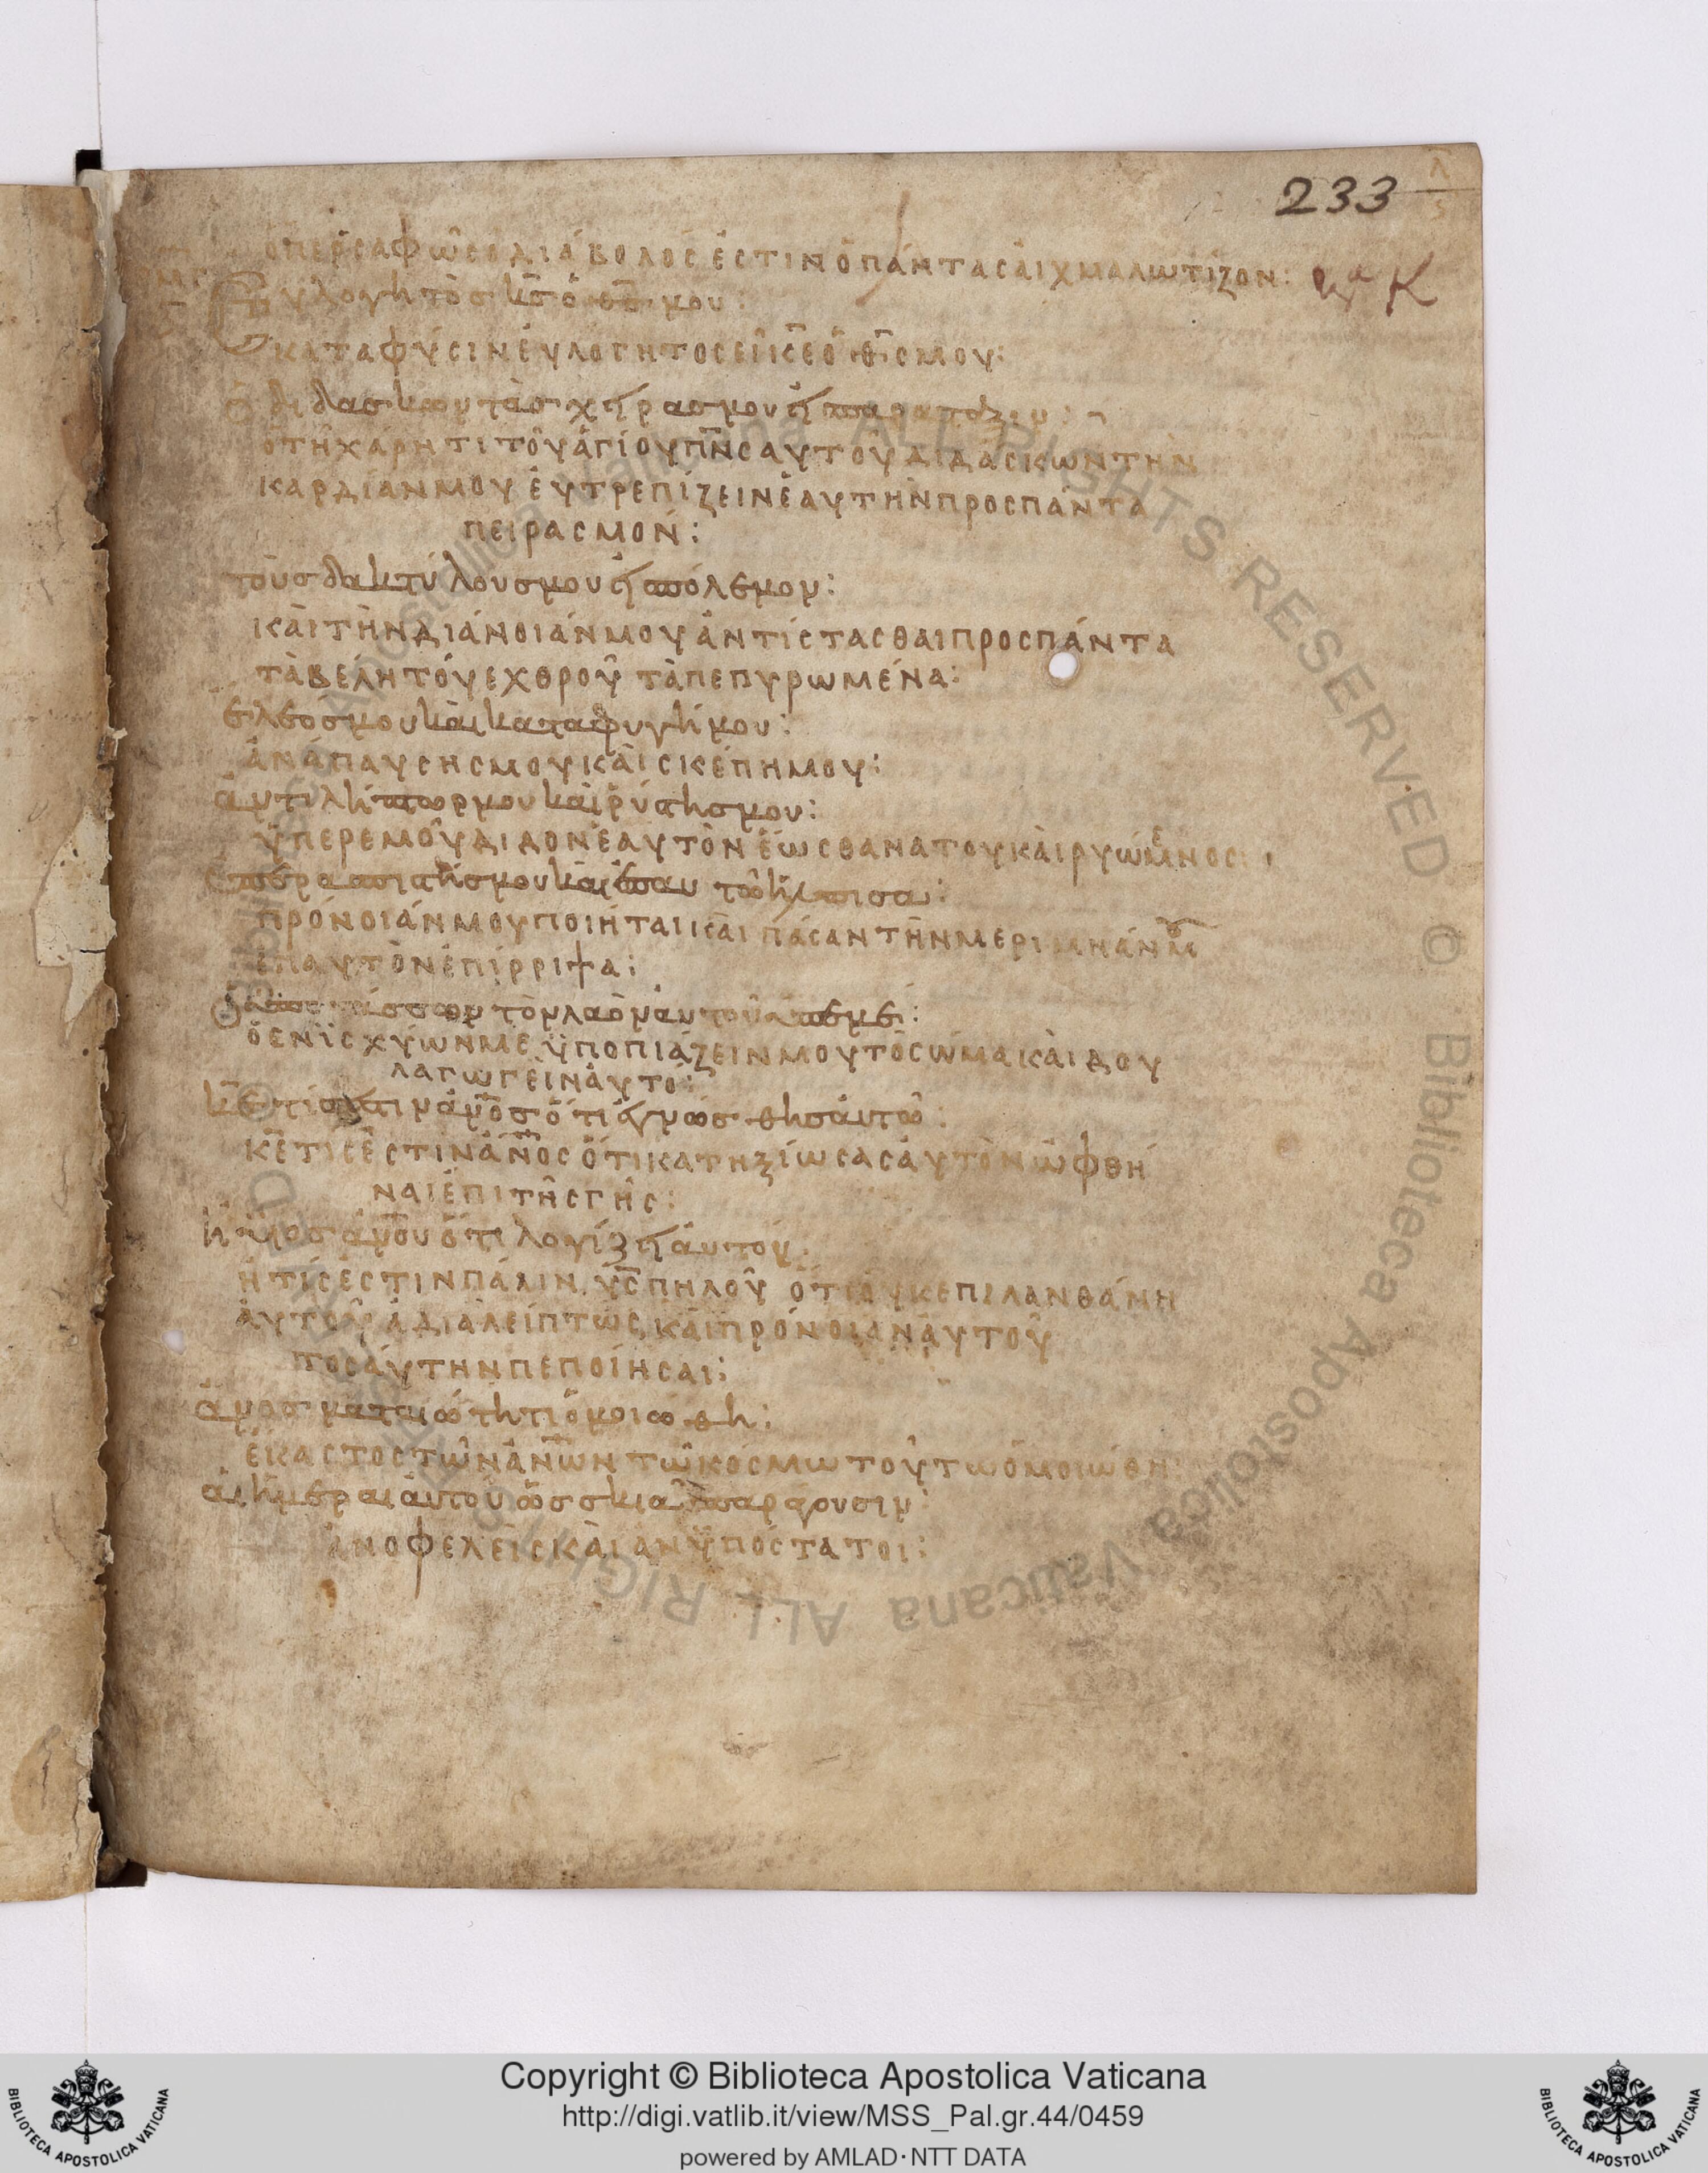 233
ὅπερ σαφῶς ὁ διάβολός ἐστιν ὁ πάντας ἀιχμαλωτίζον:
Ευλογητὸσ κ̅σ ὁ θ̅σ μου:
κατα φύσιν ἐυλογητος εἶ κ̅ε ὁ θ̅ς μου:
ὁ διδασκων τὰσ χεῖρασ μου εἰ παραταξιν:
ὁ τῇ χάρητι τοῦ ἁγίου π̅ν̅ς αυτοῦ διδάσκων τὴν
καρδίαν μου ἐυτρεπίζειν ἑαυτὴν προς πάντα
πειρασμόν:
τοὺσ δακτύλουσ μου εἰ πόλεμον:
κὰι τὴν διάνοιάν μου ἀντίστασθαι προς πάντα
τὰ βέλη τοῦ εχθροῦ τὰ πεπυρωμένα:
ελεοσ μου κὰι καταφυγή μου:
ἀνάπαυσης μου κὰι σκέπη μου:
ἀντιλήπτωρ μου κὰι ῥύστησ μου:
ὑπερ εμοῦ διδον ἑαυτὸν ἕως θανατου κὰι ρυώμενος:
ὑπερασπιστήσ μου κὰι ἐπ αυτῶ ἤλπισα:
πρόνοιάν μου ποιῆται κὰι πάσαν τὴν μεριμνάν μου
ἐπ αυτὸν ἐπίρριψα:
ὁ ὑποτάσσων τὸν λαὸν ἀυτοῦ ὑπ εμέ:
ὁ ενισχύων με ὑποπιάζειν μου τὸ σώμα κὰι δου
λαγωγεῖν ἀυτό:
κ̅ε τί εστιν ἀν̅οσ ὅτι ἐγνώσθησ ἀυτῶ:
κ̅ε τίς ἐστιν ἀν̅ος ὅτι κατηξίωσας ἀυτὸν ὠφθῆ
ναι ἐπι τῆς γῆς:
ἢ υἱοσ ἀν̅ου ὅτι λογίζη ἀυτόν.
ἢ τίς ἐστιν πάλιν υ̅ς πηλοῦ ὅτι ὀυκ επιλανθάνη
ἀυτοῦ ἀδιαλείπτως κὰι πρόνοιαν ἀυτοῦ
τοσάυτην πεποίησαι:
ἀν̅οσ ματαιότητι ὁμοιώθη:
ἕκαστος τῶν ἀν̅ων τῶ κόσμω τούτω ὁμοιώθη
ἁι ἡμέραι ἀυτοῦ ὡσ σκια παράγουσιν:
ἀνοφελεῖς κὰι ανυπόστατοι:
Copyright © Biblioteca Apostolica Vaticana
http://digi.vatlib.it/view/MSS_Pal.gr.44/0459
powered by AMLAD·NTT DATA
BIBLIOTECA APOSTOLICA VATICANA
BIBLIOTECA APOSTOLICA VATICANA